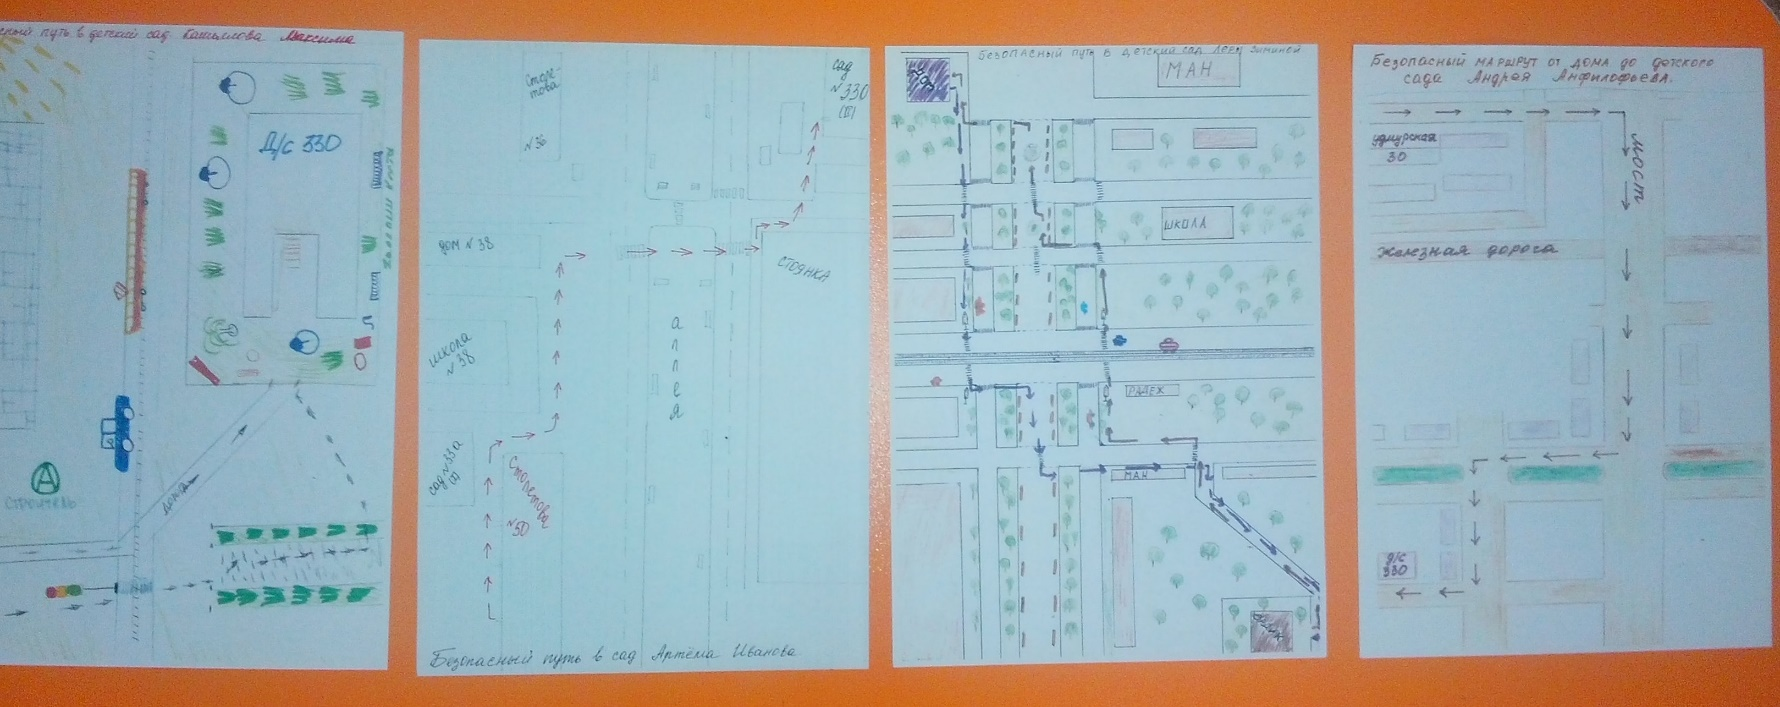 путь в детский сад Максима
Д/с 330
А
СТРОИТЕЛЬ
дома
Сторе-
това
№36
сад
№330
(II)
дом №38
СТОЯНКА
школа
№38
а
л
л
е
я
сад №33а
Сторетова
№50
Безопасный путь в сад Артёма Иванова
Безопасный путь в детский сад Лёси Зиминой
МАН
ШКОЛА
РАДЕЖ
МАН
Безопасный маршрут от дома до детского
сада Андрея Анфилофьева.
удмурская
30
мост
Железная дорога
д/с
330